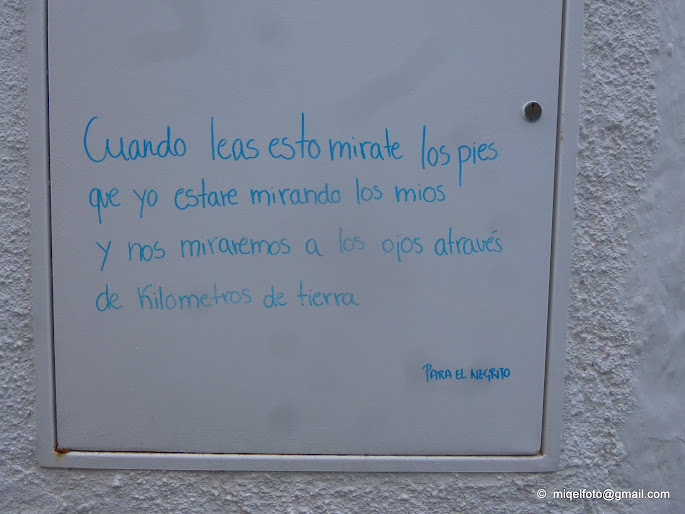 Cuando leas esto mirate los pies
que yo estare mirando los mios
y nos miraremos a los ojos através
de kilometros de tierra
PARA EL NEGRITO
© miqelfoto@gmail.com